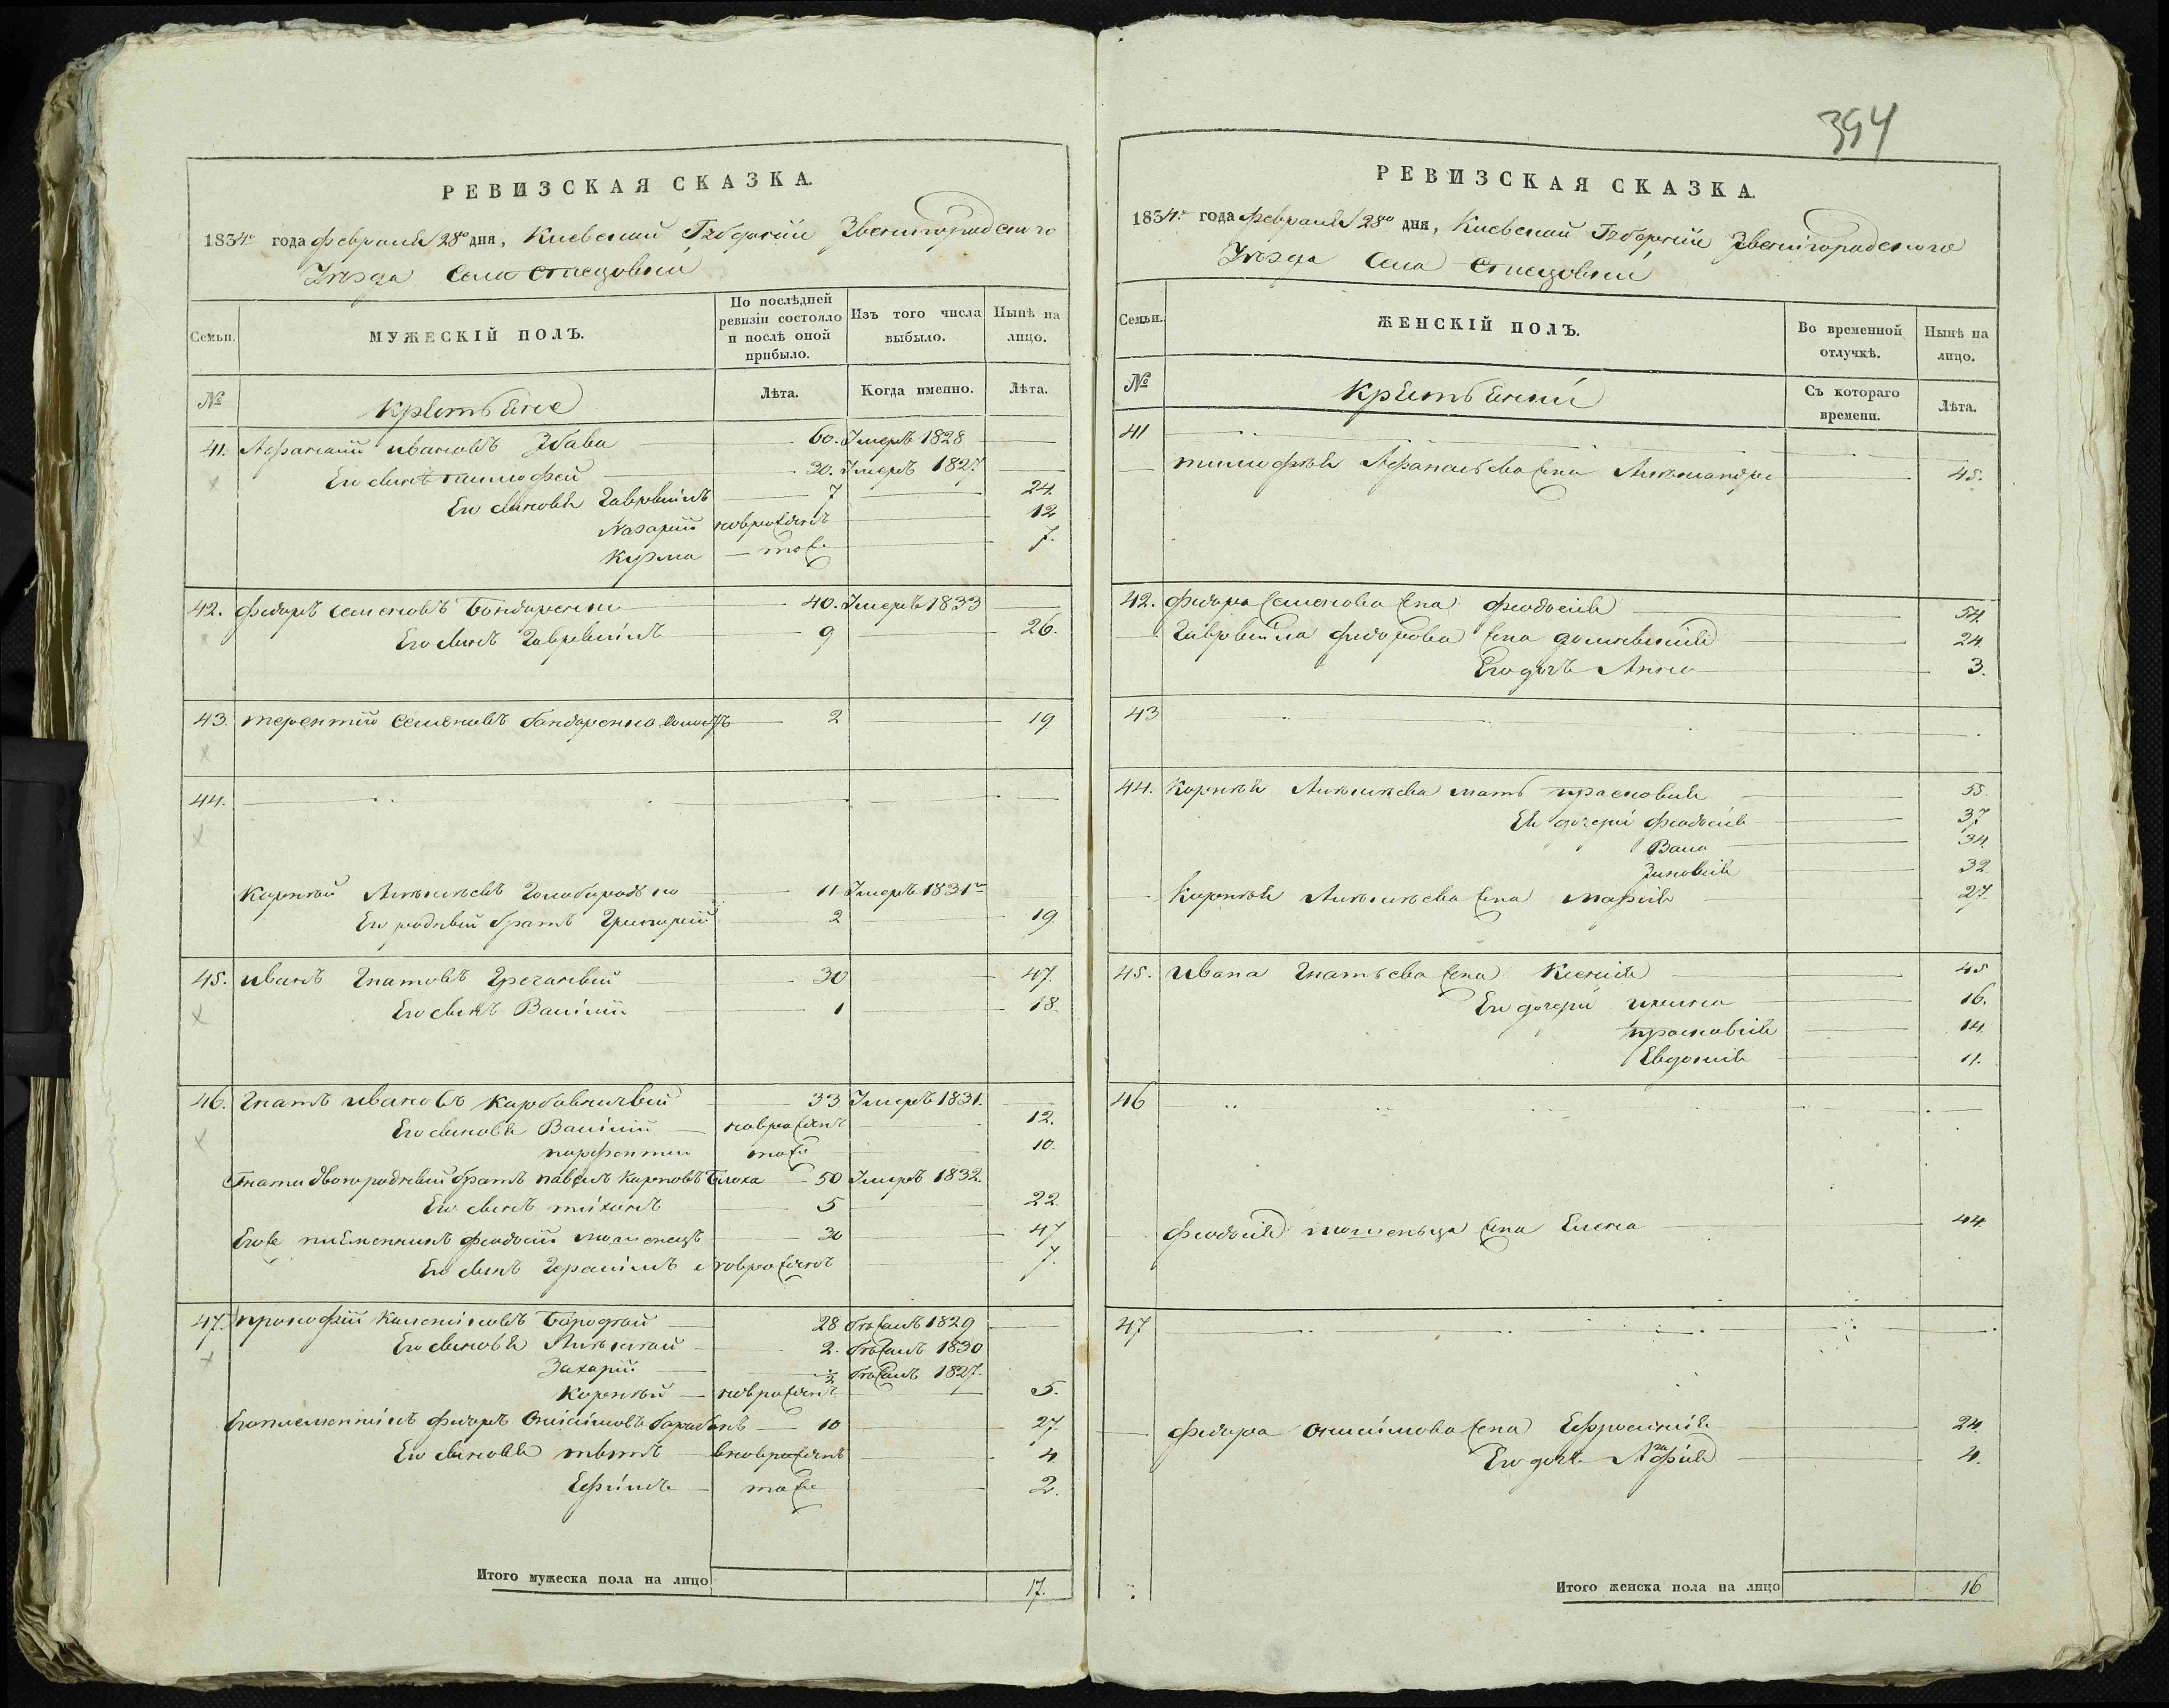 394
РЕВИЗСКАЯ СКАЗКА.
1834го года февраля 28го дня, Киевской Губернии Звенигородского
Уезда Села
Семьи.
МУЖЕСКІЙ ПОЛЪ.
По послѣдней ревизіи состояло и послѣ оной прибыло.
Изъ того числа выбыло.
Нынѣ на лицо.
№
Лѣта.
Когда именно.
Лѣта.
41. Афанасий Ивановъ Збава 60. Умеръ 1828
Его сынъ Тимофей 30. Умеръ 1827
Его сыновья Гаврыилъ 7 24.
Назарий новрожденъ 12
Кузма тоже 7.
42. Федоръ Семеновъ Бондаренко 40. Умеръ 1833
Его сынъ Гаврыилъ 9 26.
43. Терентий Семеновъ Бондаренко 2 19
44.
Корнѣй Алексѣевъ 11 Умеръ 1831го
Его родный братъ Григорий 2 19.
45. Иванъ Гнатовъ Гречаный 30 47.
Его сынъ Василий 1 18.
46. Гнатъ Ивановъ Карбовничый 33 Умеръ 1831.
Его сыновья Василий новрожденъ 12.
Парфентий тоже 10.
Гната двоюродный братъ Павелъ Карповъ Блоха 50 Умеръ 1832.
Его сынъ 5 22.
Его же племенникъ Феодосий 30 47
Его сынъ Герасимъ новрожденъ 7.
47. Прокофий 28 бежалъ 1829
Его сыновья Алексѣй 2. бежалъ 1830
Захарий ½ бежалъ 1827.
Корнѣй новрожденъ 5.
Его племенникъ Федоръ Онисимовъ 10 27.
Его сыновья новрожденъ 4.
Ефимъ тоже 2.
Итого мужеска пола на лицо 17.
РЕВИЗСКАЯ СКАЗКА.
1834го года февраля 28го дня, Киевской Губернии Звенигородского
Уезда Села
Семьи.
ЖЕНСКІЙ ПОЛЪ.
Во временной отлучкѣ.
Нынѣ на лицо.
№
Съ котораго времени.
Лѣта.
41
Тимофѣя Афанасьева жена Александра 45.
42. Федора Семенова жена Феодосия 54.
Гаврыила Федорова жена 24
Его дочь Анна 3.
43
44. Корнѣя Алексѣева мать Прасковия 55.
Ея дочери Феодосия 37
34.
Зиновия 32
Корнѣя Алексѣева жена Мария 27.
45. Ивана Гнатьева жена Ксения 45
Его дочери 16.
Прасковия 14.
Евдокия 11.
46
Феодосия жена Елена 44.
47
Федора Онисимова жена Ефросиния 24.
Его дочь 4.
Итого женска пола на лицо 16